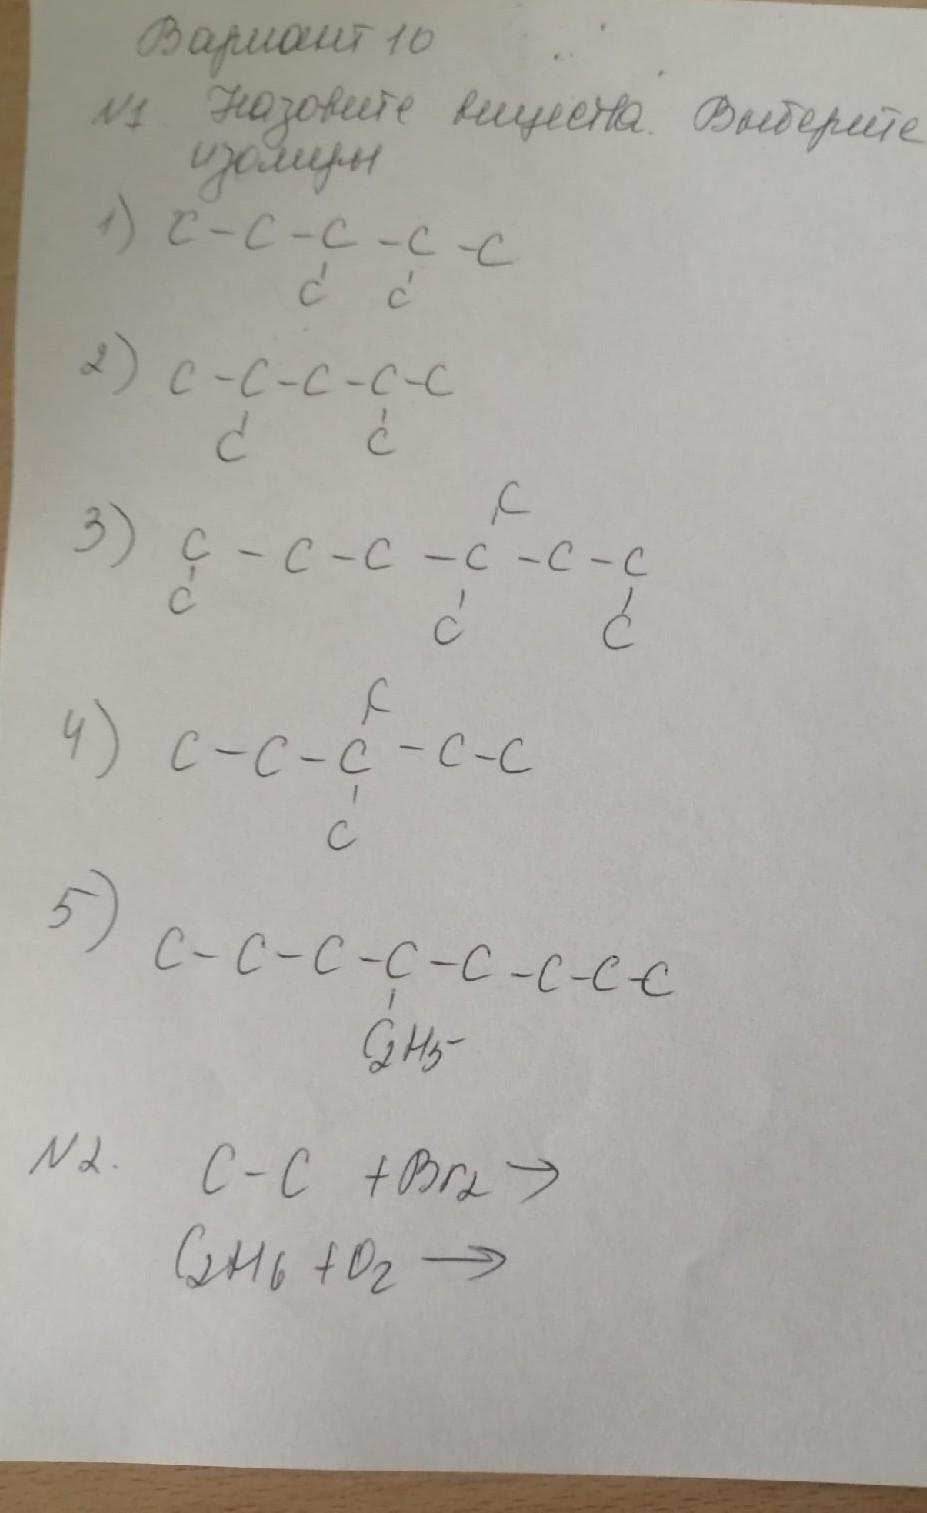 Вариант 10
N1. Назовите вещества. Выберите
изомеры
1) C - C - C - C - C
C C
2) C - C - C - C - C
C C
C
3) C - C - C - C - C - C
C C C
C
4) C - C - C - C - C
C
5) C - C - C - C - C - C - C - C
C2H5-
N2. C - C + Br2 →
C2H6 + O2 →